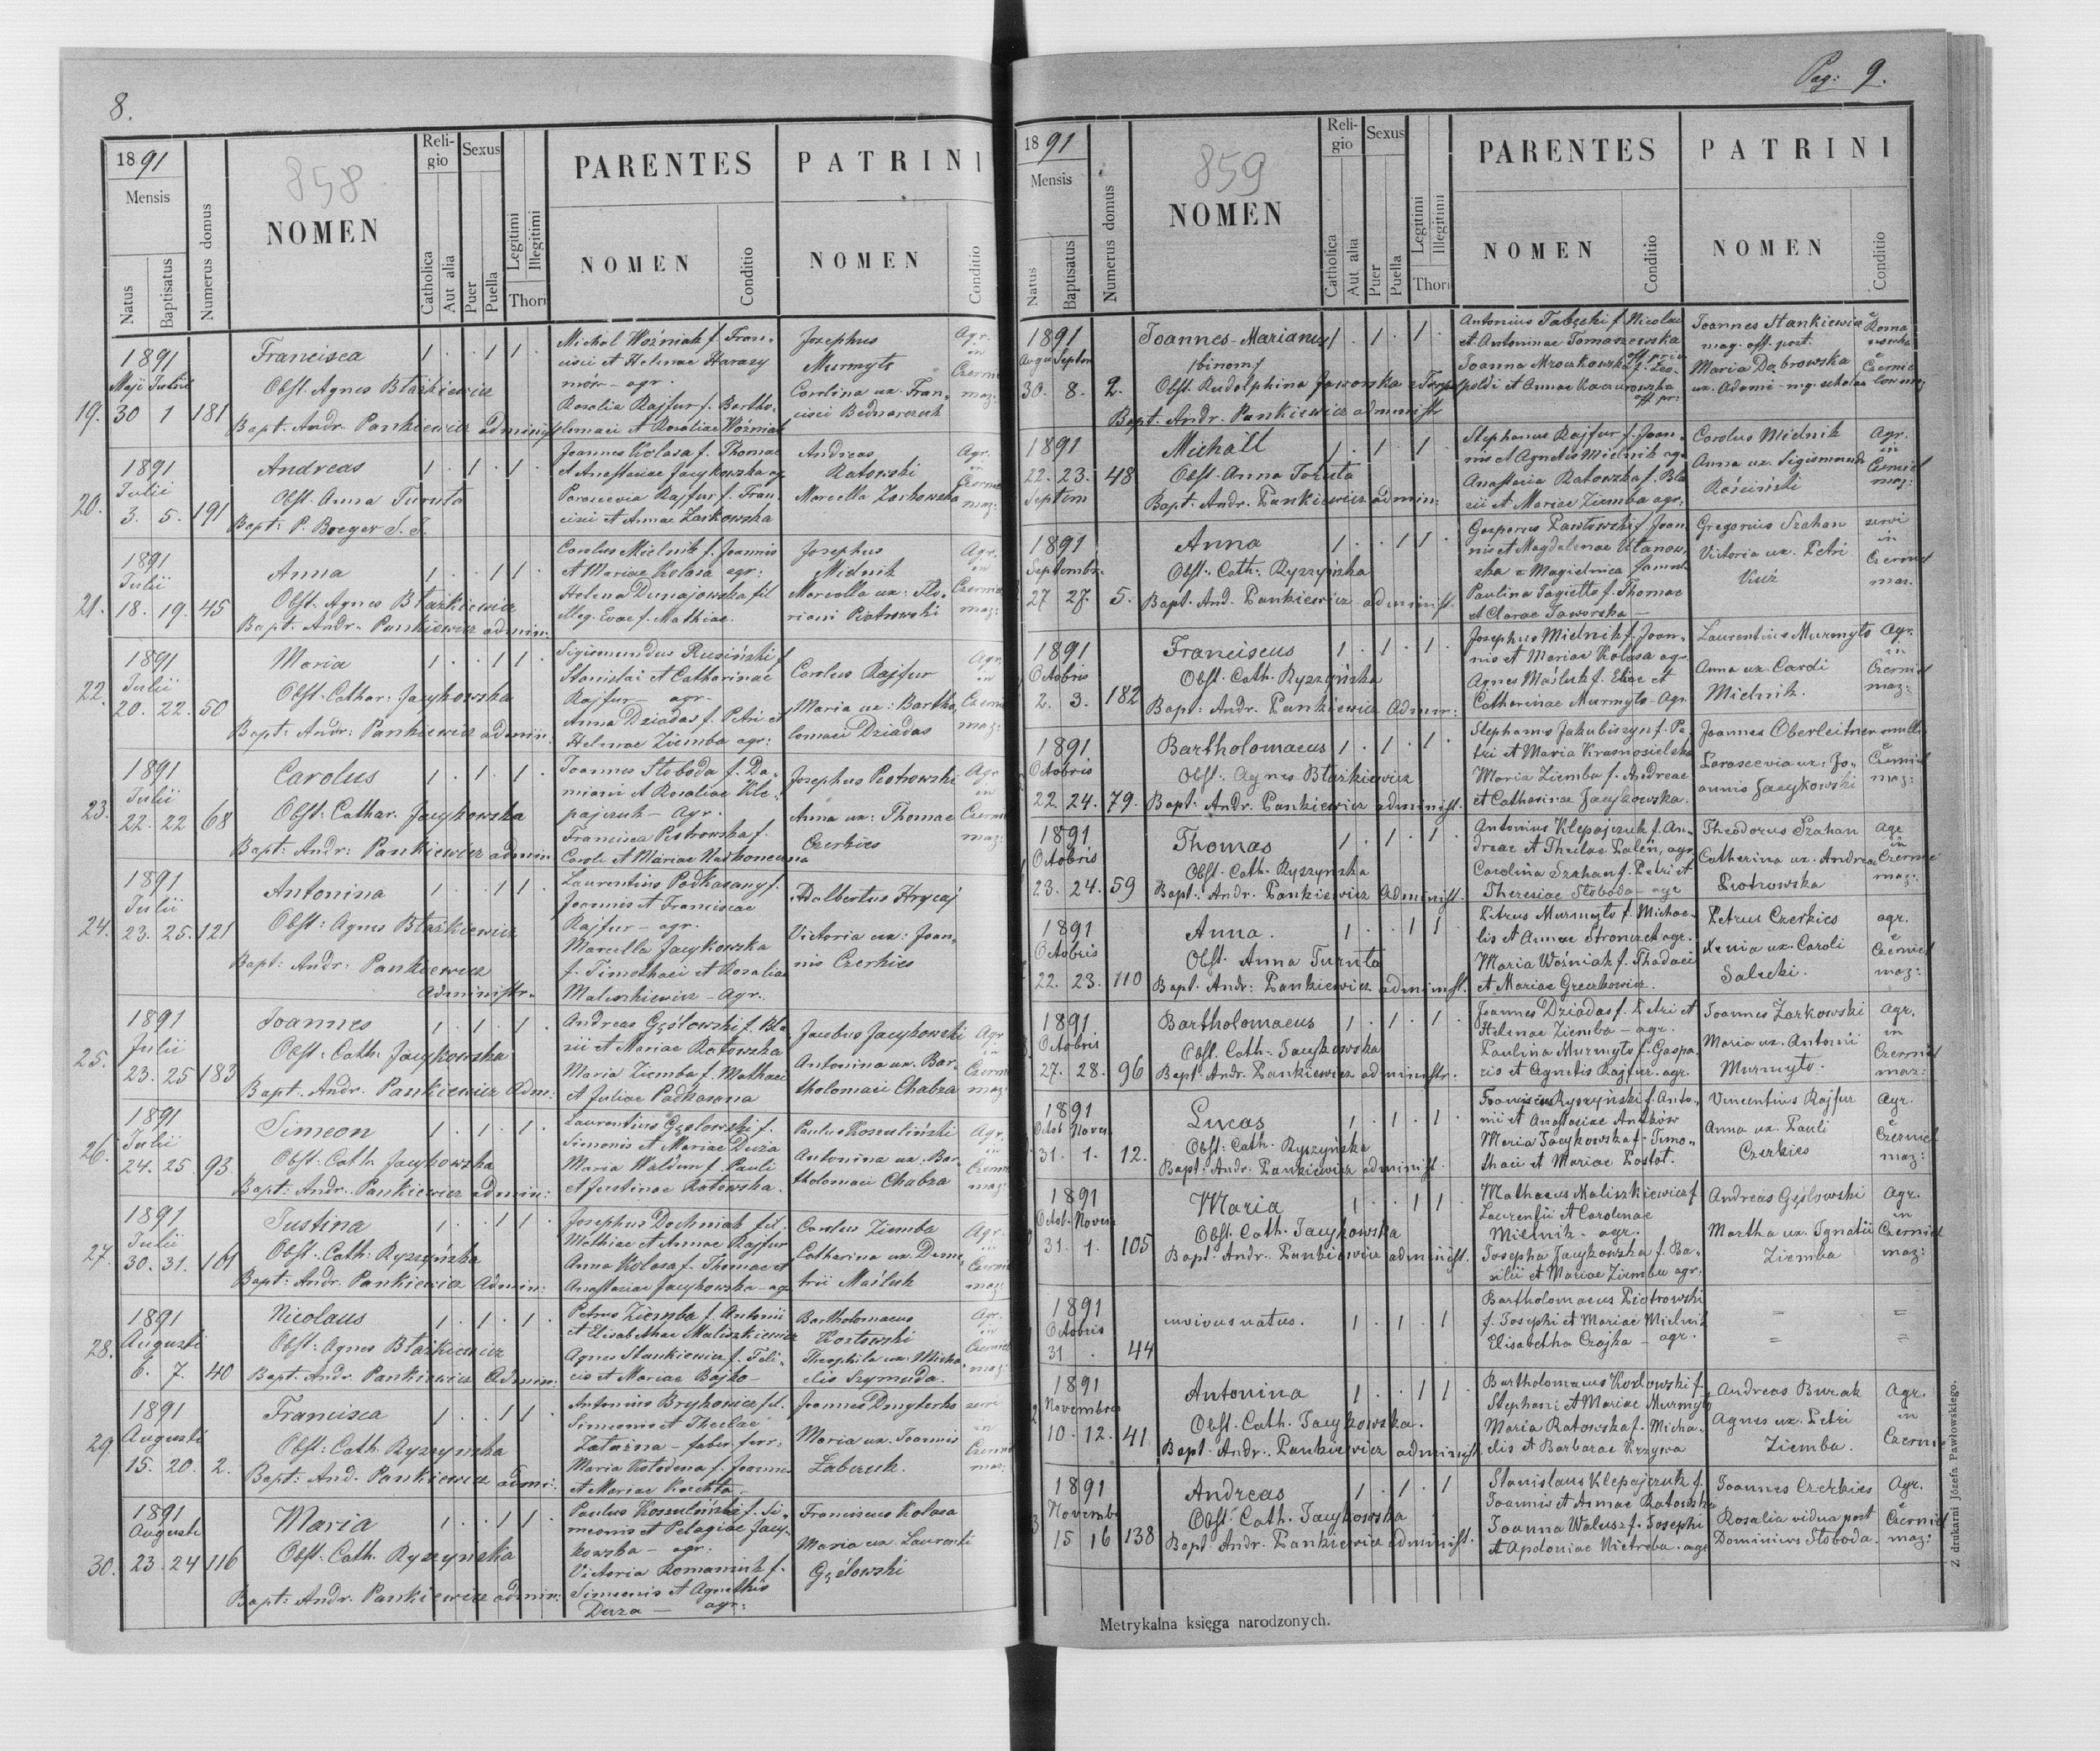 8.
1891
Mensis
Natus
Baptisatus
Numerus domus
858
NOMEN
Religio
Catholica
Aut alia
Sexus
Puer
Puella
Legitimi
Illegitimi
Thori
PARENTES
NOMEN
Conditio
PATRINI
NOMEN
Conditio
19.
1891
Maji Julii
30 1 181
Francisca
Obst. Agnes Błażkiewicz
Bapt. Andr. Pankiewicz administ
Michol Woźniak f. Fran-
cisci et Helenae Harasy
mów - agr.
Rosalia Rajfur f. Bartho-
lomaei et Rosaliae Woźniak
Josephus
Murmyło
Carolina ux. Fran-
cisci Bednarczuk
Agr.
in
20.
1891
Julii
3. 5. 191
Andreas
Obst. Anna Turuta
Bapt: P. Boeger S. J.
Joannes Kolasa f. Thomae
et Anastasiae Jacykowska ag
Parascevia Rajfur f. Fran-
cisci et Annae Zarkowska
Andreas
Ratowski
Marcella Zarkowska
Agr.
in
maz:
21.
1891
Julii
18. 19. 45
Anna
Obst. Agnes Błażkiewicz
Bapt. Andr. Pankiewicz admin.
Carolus Mielnik f. Joannis
et Mariae Kolasa agr:
Helena Dunajowska fil
illeg. Evae f. Mathiae.
Josephus
Mielnik
Marcella ux: Flo-
riani Piotrowski
Agr.
in
maz:
22.
1891
Julii
20. 22. 50
Maria
Obst. Cathar. Jacykowska
Bapt: Andr: Pankiewicz admin:
Sigismundus Rusiński f
Stanislai et Catharinae
Rajfur - agr.
Anna Dziadas f. Petri et
Helenae Ziemba agr:
Carolus Rajfur
Maria ux: Bartho
lomaei Dziadas
Agr.
in
maz:
23.
1891
Julii
22. 22 68
Carolus
Obst: Cathar. Jacykowska
Bapt: Andr: Pankiewicz admin
Joannes Słoboda f. Da-
miani et Rosaliae Kle-
pajczuk - Agr.
Francisca Piotrowska f.
Caroli et Mariae
Josephus Piotrowski
Anna ux: Thomae
Czerkies
Agr
in
maz:
24.
1891
Julii
23. 25. 121
Antonina
Obst: Agnes Błażkiewicz
Bapt: Andr: Pankiewicz
administr.
Laurentius Podkasany f.
Joannis et Franciscae
Rajfur - agr.
Marcella Jacykowska
f. Timothaei et Rosaliae
Maliszkiewicz - Agr.
Adalbertus Hrycaj
Victoria ux: Joan-
nis Czerkies
25.
1891
Julii
23. 25 183
Joannes
Obst: Cath. Jacykowska
Bapt. Andr. Pankiewicz Adm:
Andreas Gęślowski f. Bla
sii et Mariae Ratowska
Maria Ziemba f. Mathaei
et Juliae Padkasana
Jacobus Jacykowski
Antonina ux. Bar-
tholomaei Chabza
Agr
in
maz:
26.
1891
Julii
24. 25. 93.
Simeon
Obst. Cath. Jacykowska
Bapt: Andr. Pankiewicz admin:
Laurentius Gęslowski f.
Simonis et Mariae Duża
Maria f. Pauli
et Justinae Ratowska.
Paulus Koszuliński
Antonina ux. Bar-
tholomaei Chabza
Agr.
in
maz:
27.
1891
Julii
30. 31. 101
Justina
Obst. Cath: Ryszyńska
Bapt: Andr. Pankiewicz Admin:
Josephus Dochniak fil.
Mathiae et Annae Rajfur
Anna Kolasa f. Thomae et
Anastasiae Jacykowska - agr
Carolus Ziemba
Catharina ux. Deme-
trii Maśluk
Agr.
in
maz:
28.
1891
Augusti
6. 7. 40
Nicolaus
Obst: Agnes Błażkiewicz
Bapt. Andr. Pankiewicz Admin:
Petrus Ziemba f. Antonii
et Elisabethae Maliszkiewicz
Agnes Stankiewicz f. Feli-
cis et Mariae Bajko -
Bartholomaeus
Kozłowski
Theophila ux: Micha-
elis Szymuda.
Agr.
in
maz:
29.
1891
Augusti
15. 20. 2.
Francisca
Obst: Cath. Ryszynska
Bapt: And. Pankiewicz admi:
Antonius Brykowicz fil.
Simeonis et Theclae
- faber ferr:
Maria f. Joannis
et Mariae
Joannes
Maria ux. Joannis
in
30.
1891
Augusti
23. 24 116
Maria
Obst: Cath. Ryszynska
Bapt: Andr. Pankiewicz admin:
Paulus Koszuliński f. Si-
meonis et Pelagiae Jacy-
kowska - agr.
Victoria Romaniuk f.
Simeonis et Agnethis
Duza - agr:
Franciscus Kolasa
Maria ux. Laurenti
Gęślowski
Pag: 9.
1891
Mensis
Natus
Baptisatus
Numerus domus
859
NOMEN
Religio
Catholica
Aut alia
Sexus
Puer
Puella
Legitimi
Illegitimi
Thori
PARENTES
NOMEN
Conditio
PATRINI
NOMEN
Conditio
1891
Augu Septem
30. 8. 2.
Joannes-Marianus
(binom)
Obst. Rudolphina Jaworska
Bapt. Andr. Pankiewicz administr
Antonius f. Nicolai
et Antoninae Tomaszewska
Joanna Mroczkowska f. Leo-
poldi et Annae
off pr:
Joannes Stankiewicz
mag. off. post.
Maria Dobrowska
ux. Adami - mg. scholae
1891
22. 23. 48
Septem
Michäll
Obst. Anna
Bapt. Andr. Pankiewicz admin:
Stephanus Rajfur f. Joan-
nis et Agnetis Mielnik agr
Anastasia Ratowska f. Bla
sii et Mariae Ziemba agr:
Carolus Mielnik
Anna ux. Sigismundi
Agr.
in
maz:
1891
Septembr.
27 27. 5.
Anna
Obst: Cath: Ryszyńska
Bapt. And. Pankiewicz administ.
Gasparus Pawłowski f. Joan-
nis et Magdalenae
Paulina Jagiełło f. Thomae
et Clarae Jaworska -
Gregorius Szahan
Victoria ux. Petri
Kuź
servi
in
maz.
1891
Octobris
2. 3. 182
Franciscus
Obst. Cath. Ryszyńska
Bapt: Andr. Pankiewicz Admin:
Josephus Mielnik f. Joan-
nis et Mariae Kolasa agr
Agnes Maśluk f. Eliae et
Catharinae Murmyło - Agr
Laurentius Murmyło
Anna ux. Caroli
Mielnik.
Agr.
in
maz:
1891
Octobris
22. 24. 79.
Bartholomaeus
Obst: Agnes Błażkiewicz
Bapt: Andr. Pankiewicz administ.
Stephanus Jakubiszyn f. Pe-
tri et Maria Krasnosielska
Maria Ziemba f. Andreae
et Catharinae Jacykowska.
Joannes Oberleitner
Parascevia ux: Jo-
annis Jacykowski
maz:
1891
Octobris
23. 24. 59
Thomas
Obst. Cath. Ryszyńska
Bapt: Andr. Pankiewicz Administ.
Antonius Klepajczuk f. An-
dreae et Theclae Paleń, agr
Carolina Szahan f. Petri et
Theresiae Słoboda - agr
Theodorus Szahan
Catharina ux. Andreae
Piotrowska
Agr
in
maz:
1891
Octobris
22. 23. 110
Anna.
Obst. Anna Turuta
Bapt. Andr: Pankiewicz administ.
Petrus Murmyło f. Michae-
lis et Annae agr.
Maria Woźniak f. Thadaei
et Mariae
Petrus Czerkies
Xenia ux. Caroli
agr.
maz:
1891
Octobris
27. 28. 96
Bartholomaeus
Obst. Cath: Jacykowska
Bapt: Andr. Pankiewicz administr.
Joannes Dziadas f. Petri et
Helenae Ziemba - agr.
Paulina Murmyło f. Gaspa-
ris et Agnetis Rajfur. agr.
Joannes Zarkowski
Maria ux. Antonii
Murmyło.
Agr.
in
maz:
1891
Octob Novem
31. 1. 12.
Lucas
Obst: Cath: Ryszyńska
Bapt: Andr. Pankiewicz administ.
Franciscus Ryszyński f. Anto-
nii et Anastasiae
Maria Jacykowska f. Timo-
thaei et Mariae
Vincentius Rajfur
Anna ux. Pauli
Czerkies
Agr.
maz:
1891
Octob. Novem
31. 1. 105
Maria
Obst. Cath. Jacykowska
Bapt. Andr. Pankiewicz administ.
Mathaeus Maliszkiewicz f
Laurentii et Carolinae
Mielnik - agr.
Josepha Jacykowska f. Ba-
silii et Mariae Ziemba agr.
Andreas Gęślowski
Martha ux. Ignatii
Ziemba
Agr.
in
maz:
1891
Octobris
31 . 44
invivus natus.
Bartholomaeus Piotrowski
f. Josephi et Mariae Mielnik
Elisabetha Czajka - agr.
1891
Novembris
10. 12. 41
Antonina
Obst. Cath. Jacykowska.
Bapt. Andr. Pankiewicz administ.
Bartholomaeus Kozlowski f.
Stephani et Mariae Murmyło
Maria Ratowska f. Micha-
elis et Barbarae Krzywa
Andreas Burak
Agnes ux. Petri
Ziemba.
Agr.
in
1891
Novemb
15 16 138
Andreas
Obst: Cath. Jacykowska
Bapt Andr. Pankiewicz administ.
Stanislaus Klepajczuk f.
Joannis et Annae Ratowska
Joanna Walusz f. Josephi
et Apoloniae Nietreba. agr
Joannes Czerkies
Rosalia vidua post
Dominicus Słoboda.
Agr.
maz:
Metrykalna księga narodzonych.
Z drukarni Józefa Pawłowskiego.